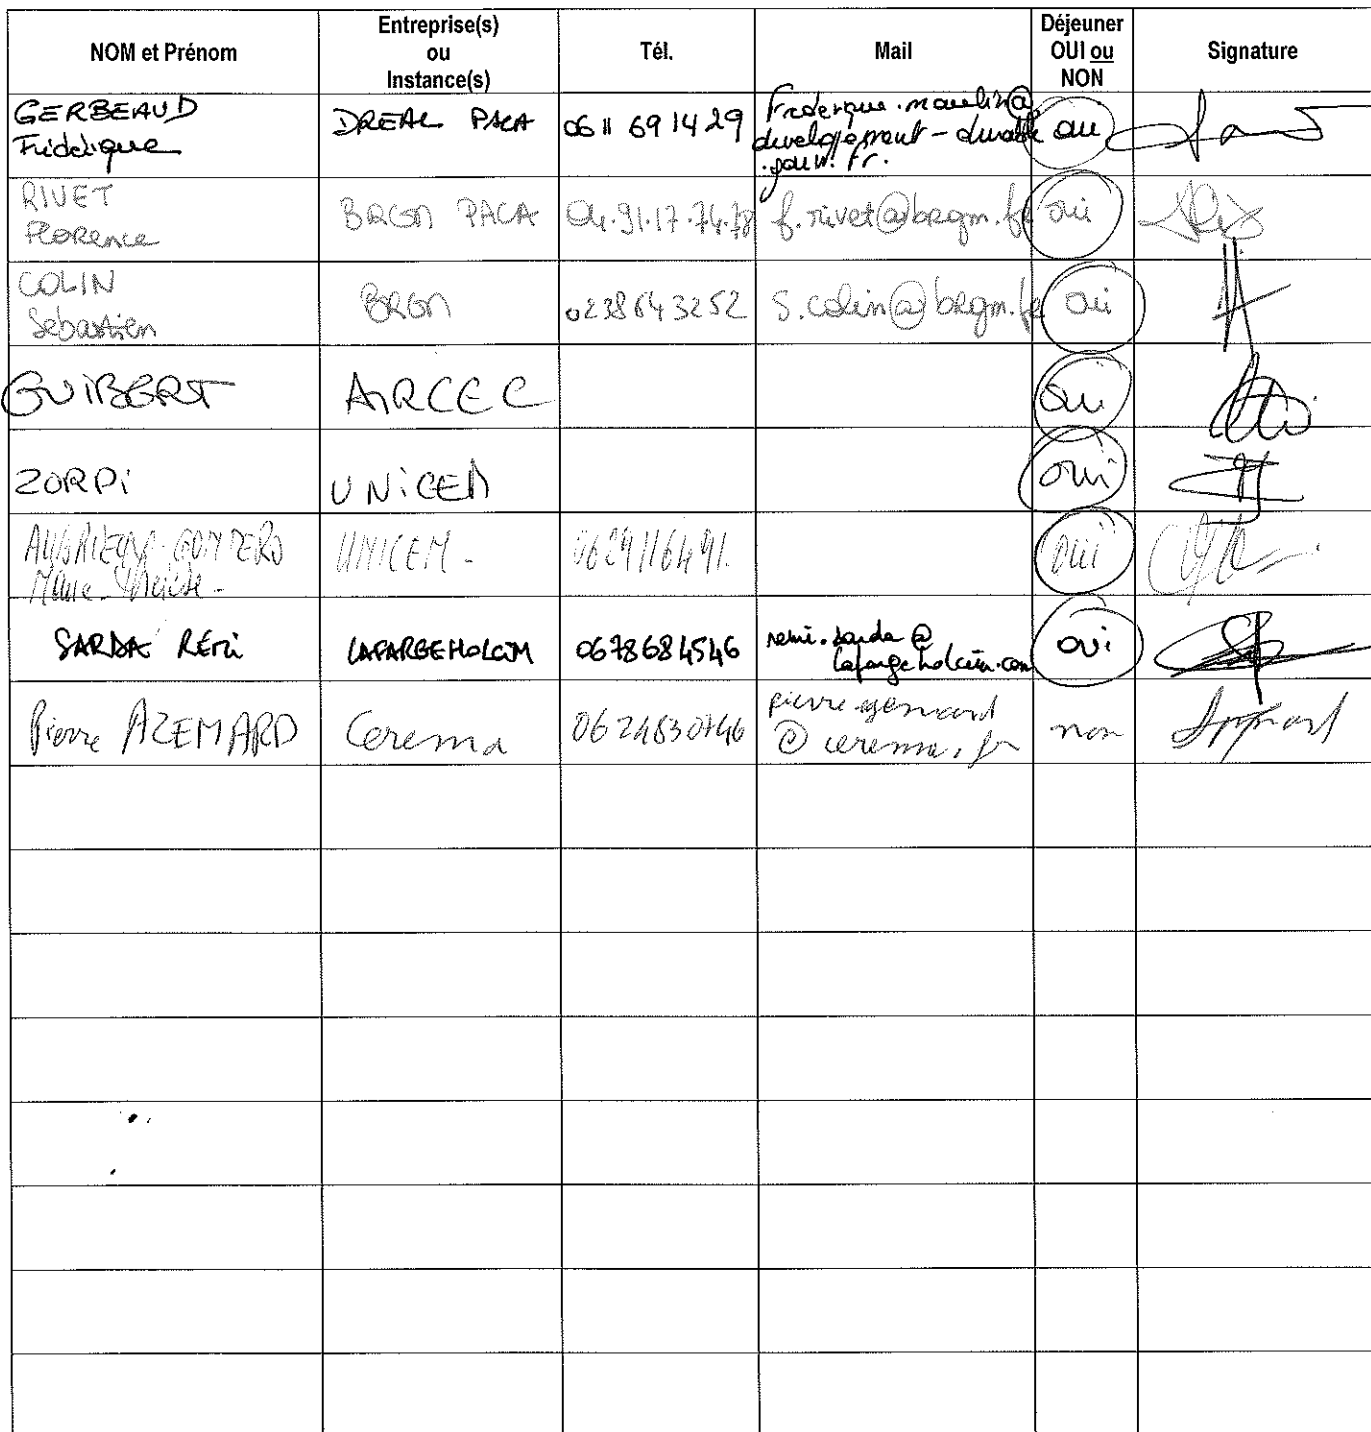 NOM et Prénom
Entreprise(s)
ou
Instance(s)
Tél.
Mail
Déjeuner
OUI ou
NON
Signature
GERBEAUD
Frédérique
DREAL PACA
0611691429
frederique.moulin@
developpement-durable
.gouv.fr.
oui
RIVET
FLORENCE
BRGM PACA
04.91.17.74.78
f.rivet@brgm.fr
oui
COLIN
Sébastien
BRGM
0238643252
s.colin@brgm.fr
oui
GUIBERT
oui
ZORPI
UNICEM
oui
Marie-Thérèse-
UNICEM-
0629116491.
oui
SARDA Rémi
LAFARGEHOLCIM
0678684546
remi.sarda@
lafargeholcim.com
oui
Pierre AZEMARD
Cerema
0624830746
pierre.azemard
@cerema.fr
non